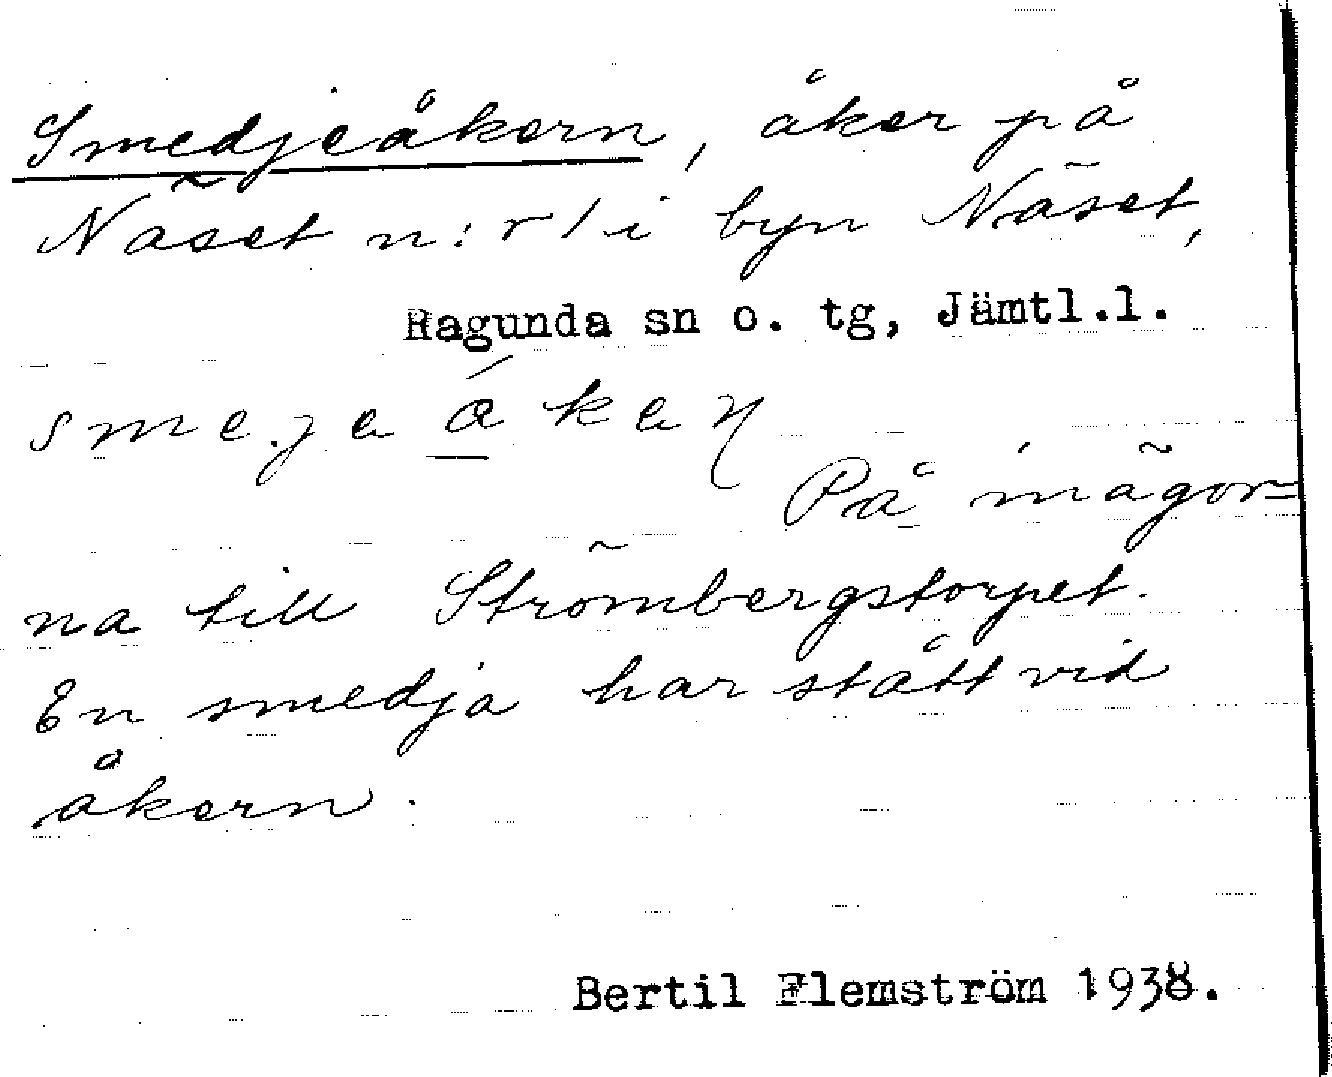 Smedjeåkern, åker på
Näset n:r 1 i byn Näset,
Ragunda sn o. tg, Jämtl.l.
smeja åkeɳ
På inägor-
na till Strömbergstorpet.
En smedja har stått vid
åkern.
Bertil Flemström 1938.